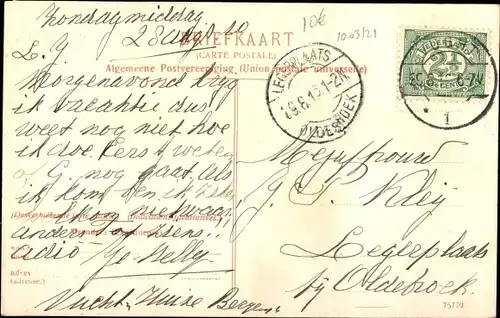 Zondagmiddag
28 aug 10
10€
10.03/21
BRIEFKAART
(CARTE POSTALE)
Algemeene Postvereeniging (Union postale universelle)
L. G
Morgenavond krijg
ik vacantie dus
weet nog niet hoe
ik doe. Eerst weten
of G. nog gaat als
ik kom ben ik
anders
adio Je Nelly
Vucht, Huize Bergen
LEGERPLAATS
29.8.10.1-2N
OLDEBROEK
NEDERLAND
2½
CENT
6-7V
1
Mejuffrouw
G. S. Kleij
Legerplaats
bij Oldebroek.
(adresse.)
75770